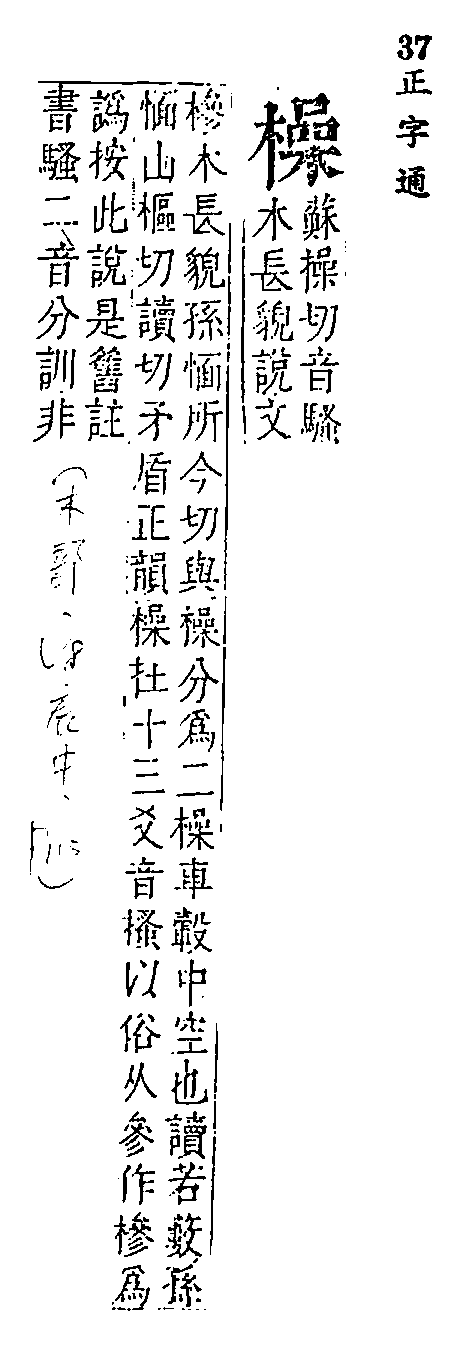 37正字通
橾
蘇操切音騷
木長貌說文
槮木長貌孫愐所今切與橾分爲二橾車轂中空也讀若藪孫
愐山樞切讀切矛盾正韻橾在十三爻音搔以俗从參作槮爲
譌按此說是舊註
書騷二音分訓非
木部
辰集中